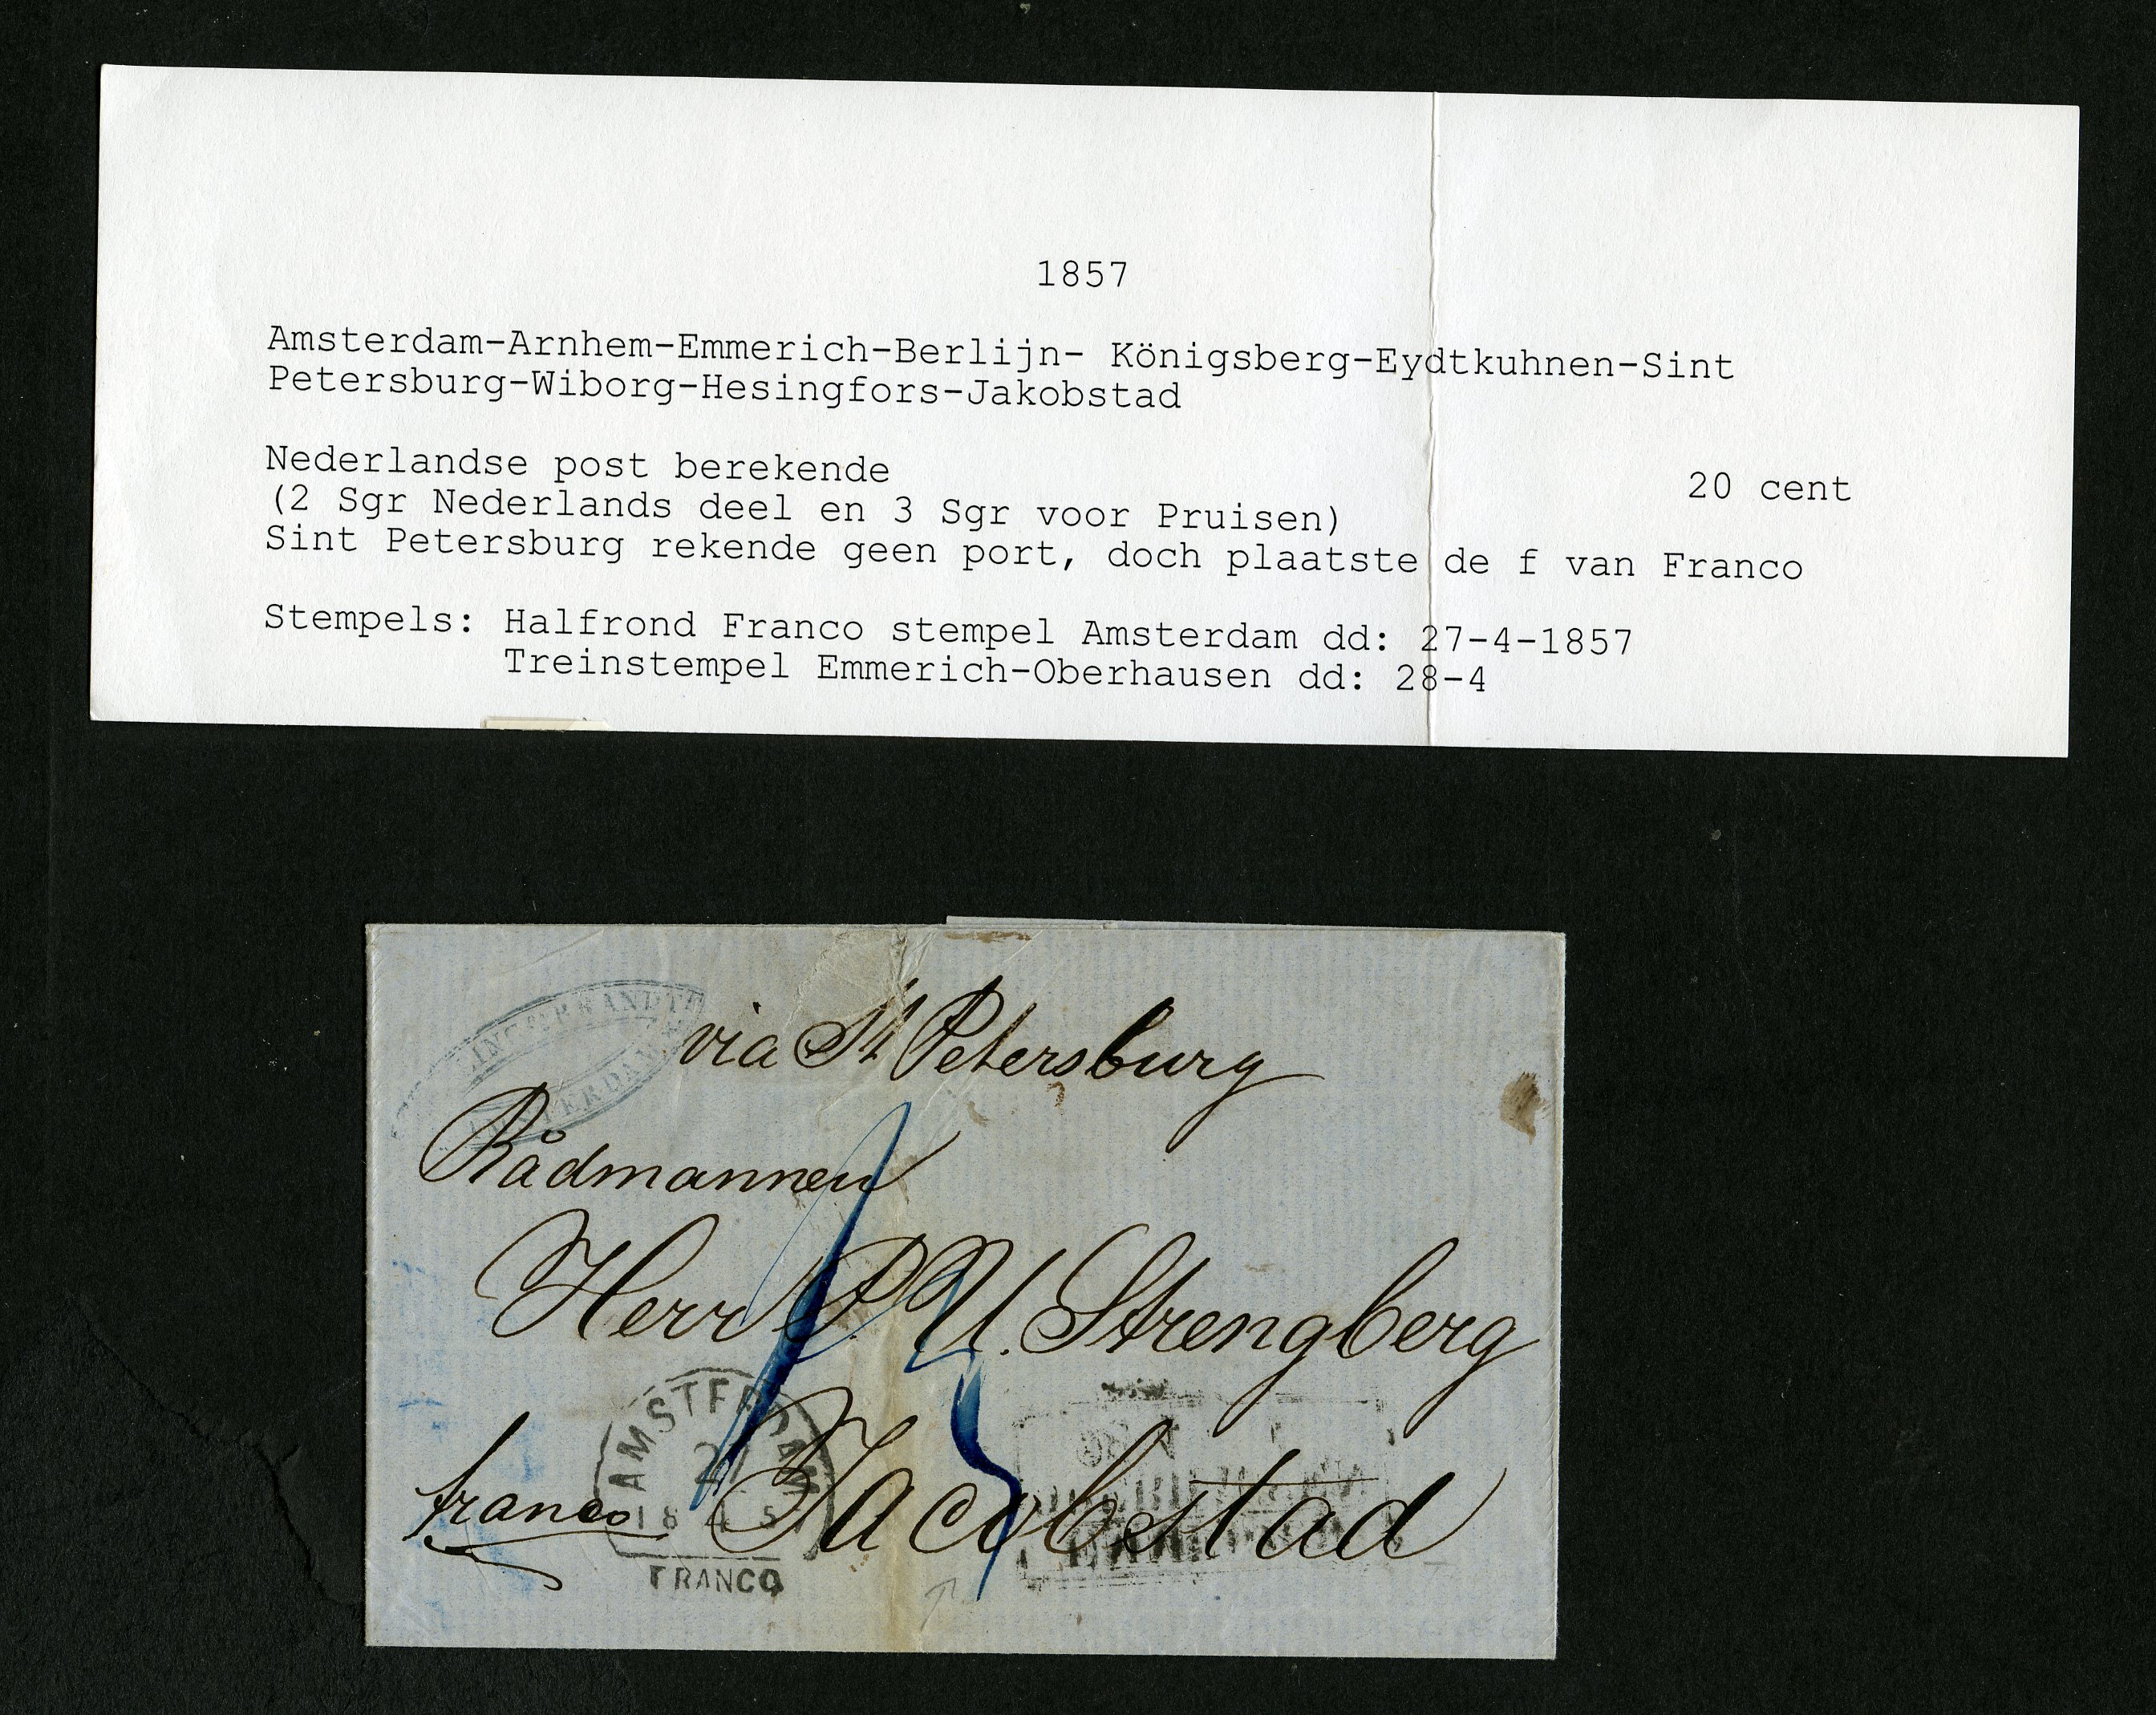 1857
Amsterdam-Arnhem-Emmerich-Berlijn- Königsberg-Eydtkuhnen-Sint
Petersburg-Wiborg-Hesingfors-Jakobstad
Nederlandse post berekende 20 cent
(2 Sgr Nederlands deel en 3 Sgr voor Pruisen)
Sint Petersburg rekende geen port, doch plaatste de f van Franco
Stempels: Halfrond Franco stempel Amsterdam dd: 27-4-1857
Treinstempel Emmerich-Oberhausen dd: 28-4
via St Petersburg
Rådmannen
Herr P U. Strengberg
AMSTERDAM
27
franco Jacobstad
FRANCO